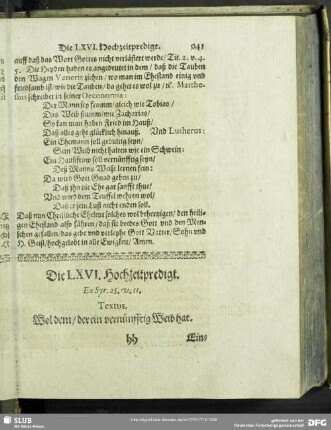 Die LXVI. Hochzeitpredigt. 641
auff daß das Wort Gottes nicht verlästert werde/ Tit. 2. v. 4.
5. Die Heyden haben es angedeutet in dem/ daß die Tauben
den Wagen Veneris ziehen/ wo man im Ehestand einig und
friedsamb ist/ wie die Tauben/ da gehet es wol zu/ H. Matthe-
sius schreibet in seiner Oeconomia:
Der Mann sey fromm/ gleich wie Tobias/
Das Weib stumm/ wie Zacharias/
So kan man haben Fried im Hauß/
Daß alles geht glücklich hinauß. Und Lutherus:
Ein Ehemann soll gedultig seyn/
Sein Weib nicht halten wie ein Schwein:
Ein Haußfraw soll vernünfftig seyn/
Deß Manns Weise lernen fein:
Da wird Gott Gnad geben zu/
Daß ihn die Ehe gar sanfft thut/
Und wird dem Teuffel wehren wol/
Daß er sein Lust nicht enden soll.
Daß nun Christliche Eheleut solches wol behertzigen/ den heili-
gen Ehestand also führen/ daß sie beedes Gott und den Men-
schen gefallen/ das gebe und verleyhe Gott Vatter/ Sohn und
H. Geist/ hochgelobt in alle Ewigkeit/ Amen.
Die LXVI. Hochzeitpredigt.
Ex Syr. 25. v. 11.
Textus.
Wol dem/ der ein vernünfftig Weib hat.
hh Ein-
SLUB
DFG